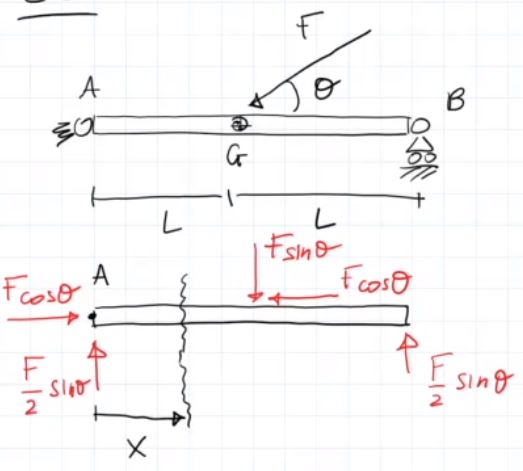 F
A
θ
B
G
L
L
A
F sinθ
F cosθ
F cosθ
F/2 sinθ
F/2 sinθ
x